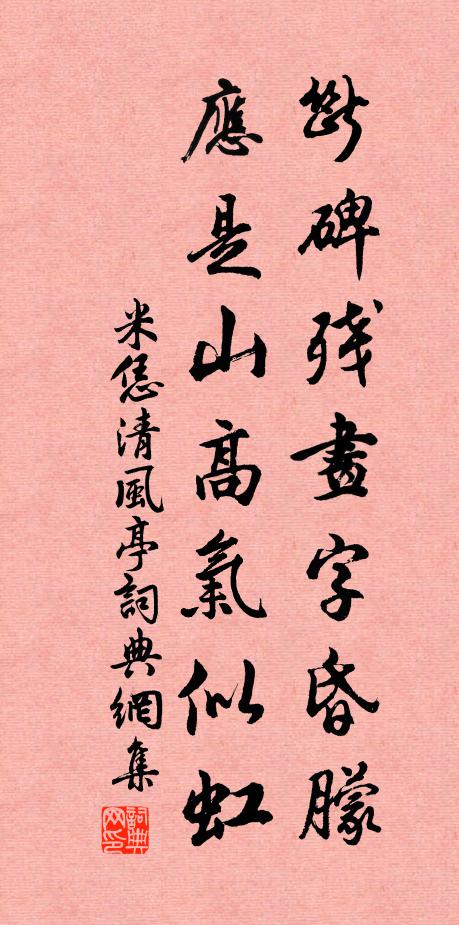 斷碑殘畫字昏朦
應是山高氣似虹
米恁清風亭詞典網集
詞典網印